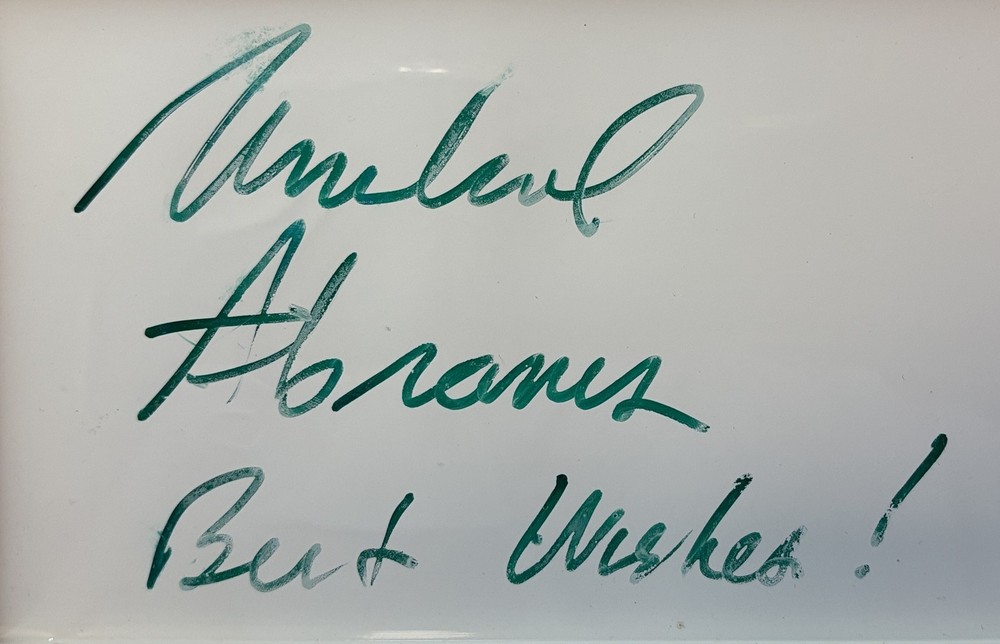 Michael
Abrams
Best Wishes!